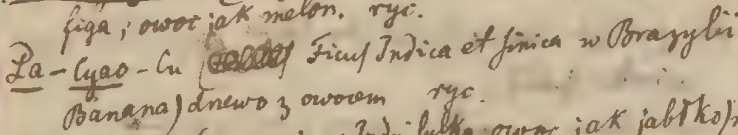 figa; owoc jak melon. ryc.
Pa-Cyao-Cu Ficus Indica et sinica w Brazylii
Banana) drzewo z owocem ryc.
owoc jak jabłko)